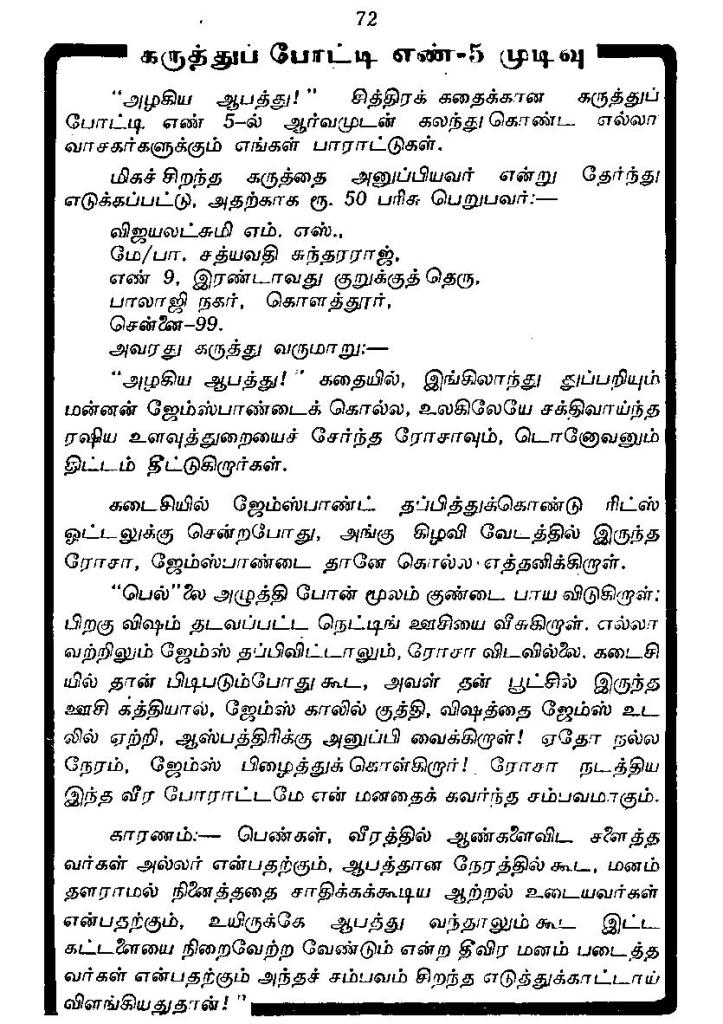 72
கருத்துப் போட்டி எண்-5 முடிவு
"அழகிய ஆபத்து!" சித்திரக் கதைக்கான கருத்துப்
போட்டி எண் 5-ல் ஆர்வமுடன் கலந்துகொண்ட எல்லா
வாசகர்களுக்கும் எங்கள் பாராட்டுகள்.
மிகச் சிறந்த கருத்தை அனுப்பியவர் என்று தேர்ந்து
எடுக்கப்பட்டு, அதற்காக ரூ. 50 பரிசு பெறுபவர்:—
விஜயலட்சுமி எம். எஸ்.,
மே/பா. சத்யவதி சுந்தரராஜ்,
எண் 9, இரண்டாவது குறுக்குத் தெரு,
பாலாஜி நகர், கொளத்தூர்,
சென்னை–99.
அவரது கருத்து வருமாறு:—
"அழகிய ஆபத்து!" கதையில், இங்கிலாந்து துப்பறியும்
மன்னன் ஜேம்ஸ்பாண்டைக் கொல்ல, உலகிலேயே சக்திவாய்ந்த
ரஷிய உளவுத்துறையைச் சேர்ந்த ரோசாவும், டொனோவனும்
திட்டம் தீட்டுகிறார்கள்.
கடைசியில் ஜேம்ஸ்பாண்ட் தப்பித்துக்கொண்டு ரிட்ஸ்
ஓட்டலுக்கு சென்றபோது, அங்கு கிழவி வேடத்தில் இருந்த
ரோசா, ஜேம்ஸ்பாண்டை தானே கொல்ல எத்தனிக்கிறாள்.
"பெல்"லை அழுத்தி போன் மூலம் குண்டை பாய விடுகிறாள்;
பிறகு விஷம் தடவப்பட்ட நெட்டிங் ஊசியை வீசுகிறாள். எல்லா
வற்றிலும் ஜேம்ஸ் தப்பிவிட்டாலும், ரோசா விடவில்லை. கடைசி
யில் தான் பிடிபடும்போது கூட, அவள் தன் பூட்சில் இருந்த
ஊசி கத்தியால், ஜேம்ஸ் காலில் குத்தி, விஷத்தை ஜேம்ஸ் உட
லில் ஏற்றி, ஆஸ்பத்திரிக்கு அனுப்பி வைக்கிறாள்! ஏதோ நல்ல
நேரம், ஜேம்ஸ் பிழைத்துக் கொள்கிறார்! ரோசா நடத்திய
இந்த வீர போராட்டமே என் மனதைக் கவர்ந்த சம்பவமாகும்.
காரணம்:— பெண்கள், வீரத்தில் ஆண்களைவிட சளைத்த
வர்கள் அல்லர் என்பதற்கும், ஆபத்தான நேரத்தில் கூட, மனம்
தளராமல் நினைத்ததை சாதிக்கக்கூடிய ஆற்றல் உடையவர்கள்
என்பதற்கும், உயிருக்கே ஆபத்து வந்தாலும் கூட இட்ட
கட்டளையை நிறைவேற்ற வேண்டும் என்ற தீவிர மனம் படைத்த
வர்கள் என்பதற்கும் அந்தச் சம்பவம் சிறந்த எடுத்துக்காட்டாய்
விளங்கியதுதான்!"